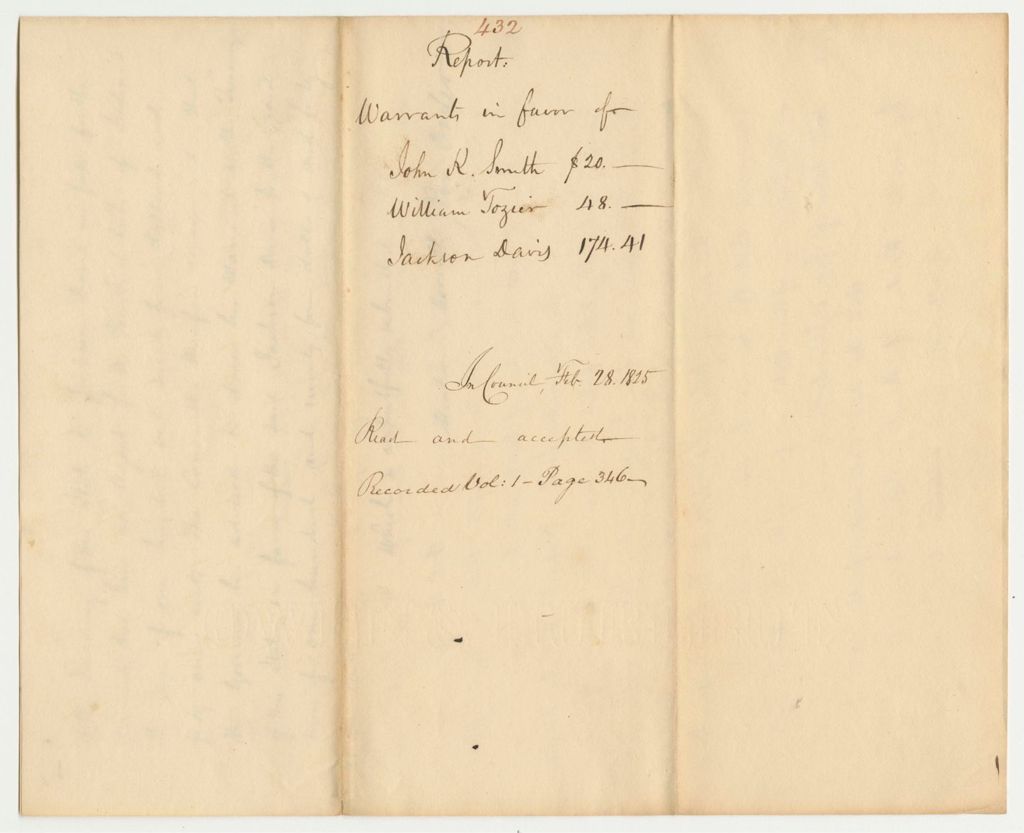 432
Report.
Warrants in favor of
John K. Smith $20. —
William Tozier 48. —
Jackson Davis 174.41
In Council, Feb. 28. 1825
Read and accepted
Recorded Vol: 1 – Page 346